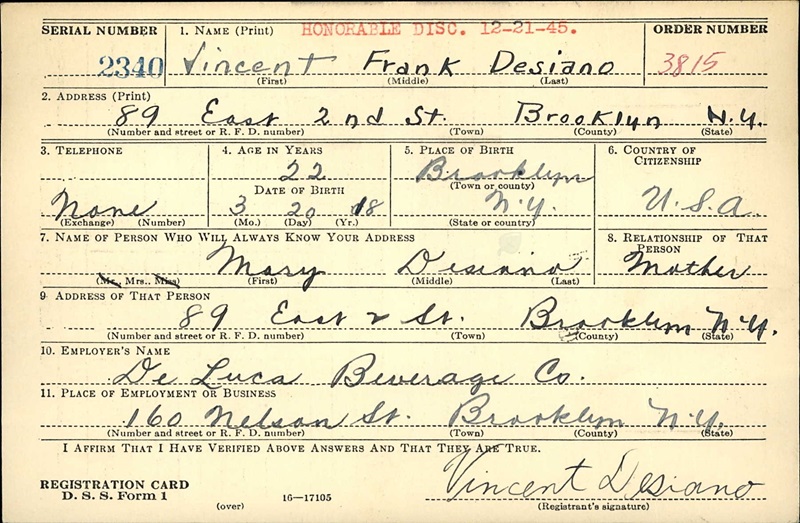 SERIAL NUMBER 1. NAME (Print) HONORABLE DISC. 12-21-45. ORDER NUMBER
2340 Vincent Frank Desiano 3815
(First) (Middle) (Last)
2. ADDRESS (Print)
89 East 2nd St. Brooklyn N.Y.
(Number and street or R. F. D. number) (Town) (County) (State)
3. TELEPHONE 4. AGE IN YEARS 5. PLACE OF BIRTH 6. COUNTRY OF CITIZENSHIP
22 Brooklyn
DATE OF BIRTH (Town or county)
None 3 20 18 N.Y. U.S.A.
(Exchange) (Number) (Mo.) (Day) (Yr.) (State or country)
7. NAME OF PERSON WHO WILL ALWAYS KNOW YOUR ADDRESS 8. RELATIONSHIP OF THAT PERSON
Mary Desiano Mother
(Mr. Mrs., Miss) (First) (Middle) (Last)
9. ADDRESS OF THAT PERSON
89 East 2 St. Brooklyn N.Y.
(Number and street or R. F. D. number) (Town) (County) (State)
10. EMPLOYER'S NAME
De Luca Beverage Co.
11. PLACE OF EMPLOYMENT OR BUSINESS
160 Nelson St. Brooklyn N.Y.
(Number and street or R. F. D. number) (Town) (County) (State)
I AFFIRM THAT I HAVE VERIFIED ABOVE ANSWERS AND THAT THEY ARE TRUE.
REGISTRATION CARD Vincent Desiano
D. S. S. Form 1 (over) 16—17105 (Registrant's signature)